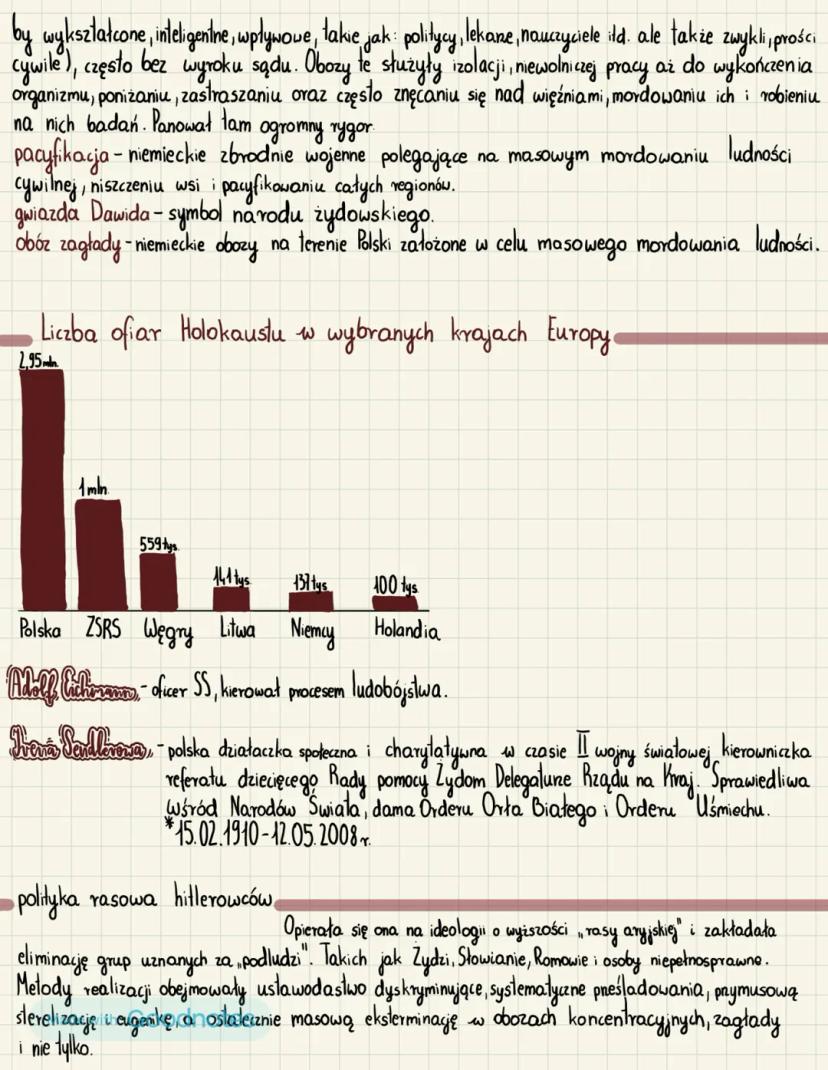 by wykształcone, inteligentne, wpływowe, takie jak: politycy, lekarze, nauczyciele itd. ale także zwykli, prości
cywile), często bez wyroku sądu. Obozy te służyły izolacji, niewolniczej pracy aż do wykończenia
organizmu, poniżaniu, zastraszaniu oraz często znęcaniu się nad więźniami, mordowaniu ich i robieniu
na nich badań. Panował tam ogromny rygor
pacyfikacja - niemieckie zbrodnie wojenne polegające na masowym mordowaniu ludności
cywilnej, niszczeniu wsi i pacyfikowaniu całych regionów.
gwiazda Dawida - symbol narodu żydowskiego.
obóz zagłady - niemieckie obozy na terenie Polski założone w celu masowego mordowania ludności.
Liczba ofiar Holokaustu w wybranych krajach Europy
2,95 mln.
1 mln.
559 tys.
141 tys
137 tys
100 tys
Polska ZSRS Węgry Litwa Niemcy Holandia
Adolf Eichmann, - oficer SS, kierował procesem ludobójstwa.
Irena Sendlerowa, - polska działaczka społeczna i charytatywna w czasie II wojny światowej kierowniczka
referatu dziecięcego Rady pomocy Żydom Delegaturze Rządu na Kraj. Sprawiedliwa
Wśród Narodów Świata, dama Orderu Orła Białego i Orderu Uśmiechu.
*15.02.1910-12.05.2008 r.
polityka rasowa hitlerowców
Opierała się ona na ideologii o wyższości „rasy aryjskiej" i zakładała
eliminację grup uznanych za „podludzi". Takich jak Żydzi, Słowianie, Romowie i osoby niepełnosprawne.
Metody realizacji obejmowały ustawodastwo dyskryminujące, systematyczne prześladowania, przymusową
sterelizację i eugenikę, a ostatecznie masową eksterminację w obozach koncentracyjnych, zagłady
i nie tylko.
Goodnotes